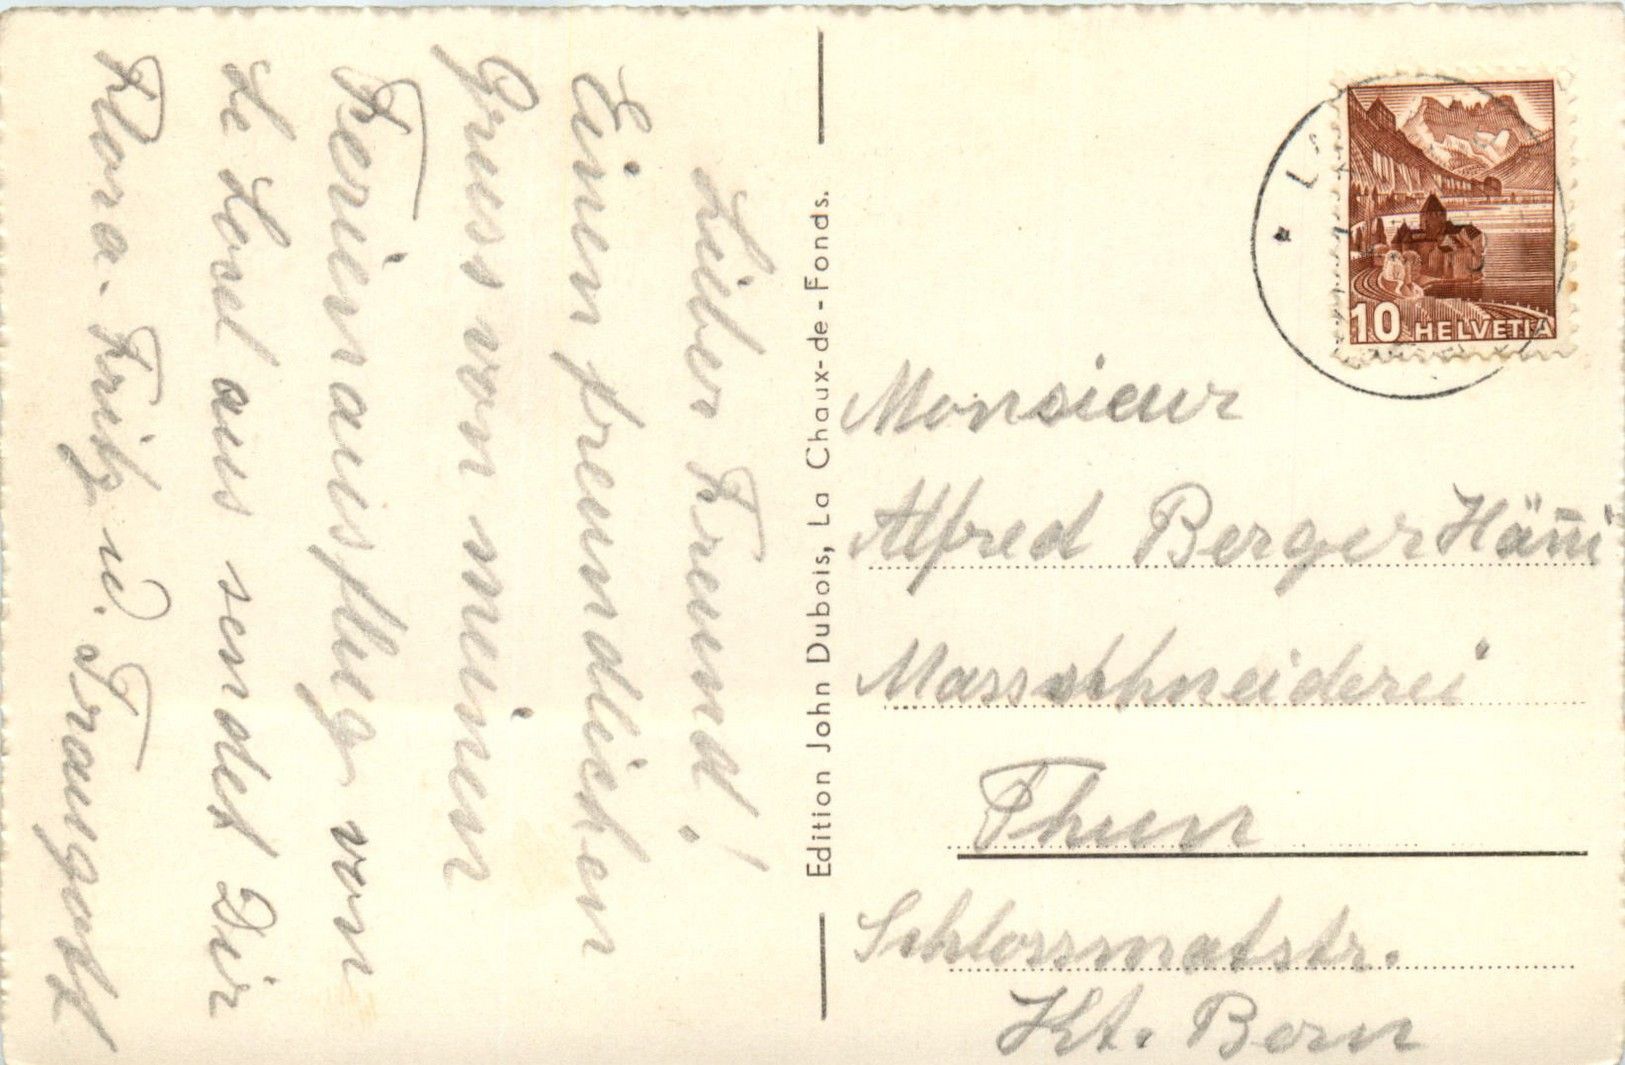 Lieber Freund!
Einen freundlichen
Gruss von meinem
Ferienausflug von
Le Locel aus sendet Dir
Klara. Fritz u. Traugott
Edition John Dubois, La Chaux-de-Fonds.
10 HELVETIA
Monsieur
Alfred Berger Häni
Massschneiderei
Thun
Schlossmatstr.
Kt. Bern